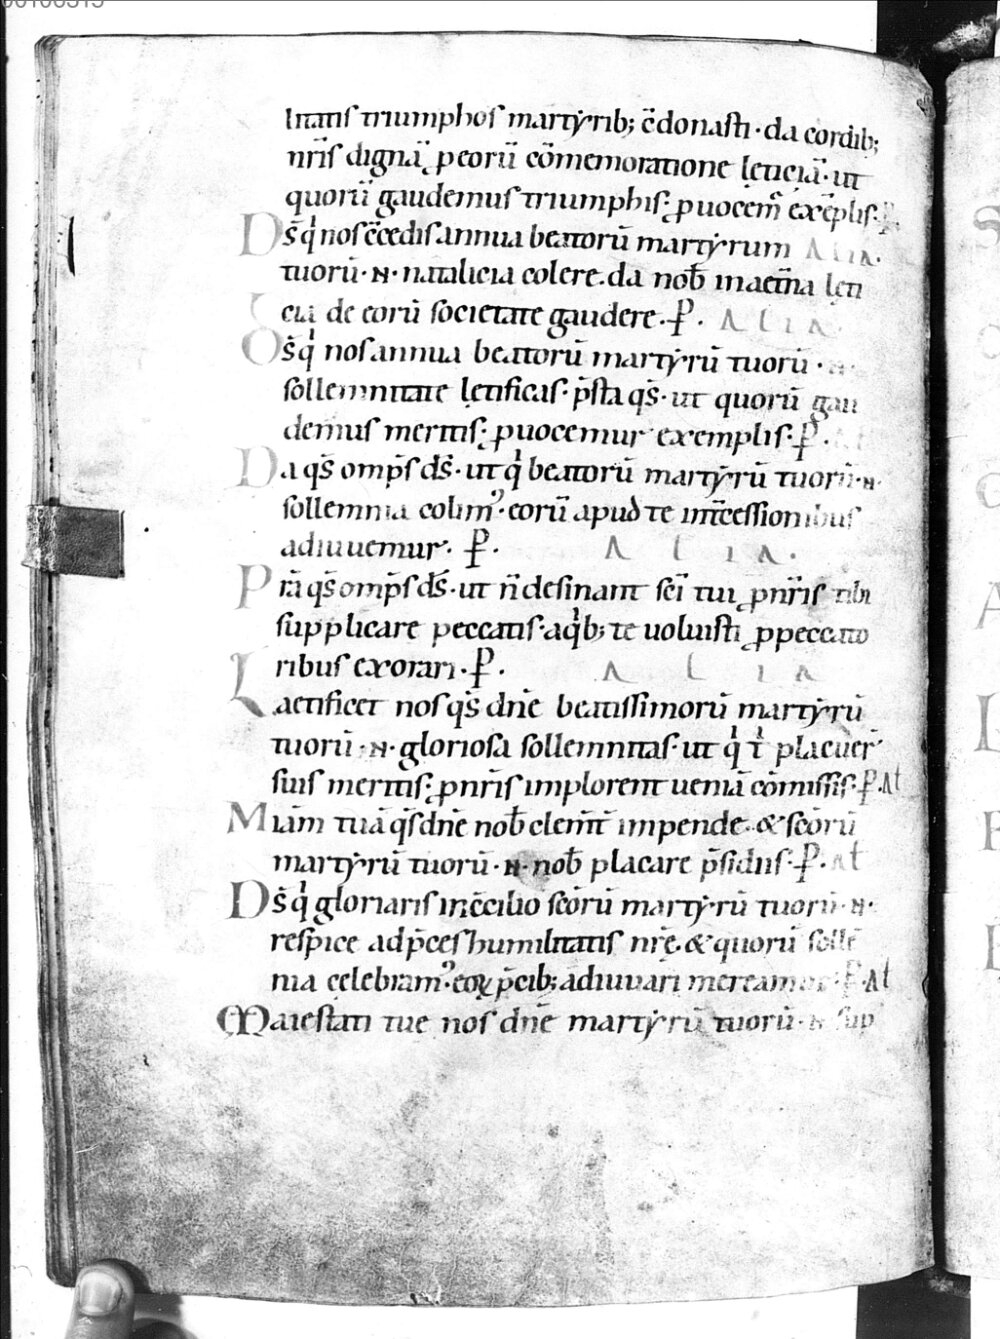 litatis triumphos martẏrib; c̄donasti · da cordib;
nr̄is dignā p eorū cōmemoratione lęticiā · ut
quorū gaudemus triumphis; ꝓuocem̄ exēplis ·
Ds̄ qͥ nos c̄cedis annua beatorū martẏrum ALIA ·
tuorū · N · natalicia colere · da nob̄ in aet̄na lęti
cia de eorū societate gaudere · P · ALIA ·
Ds̄ qͥ nos annua beatorū martẏrū tuorū · N ·
sollemnitate lętificas · p̄sta qs̄ · ut quorū gau
demus meritis; ꝓuocemur exemplis · P ·
Da qs̄ omp̄s ds̄ · ut qͥ beatorū martẏrū tuorū · N ·
sollemnia colim᾽ · eorū apud te int̄cessionibus
adiuuemur · P · ALIA ·
Prā qs̄ omp̄s ds̄ · ut n̄ desinant sc̄i tui ꝓ nr̄is tibi
supplicare peccatis · a qͥb; te uoluisti ꝓ peccato
ribus exorari · P · ALIA
Laetificet nos qs̄ dn̄e beatissimorū martẏrū
tuorū · N · gloriosa sollemnitas · ut qͥ tͥ placuer̄
suis meritis; ꝓ nr̄is implorent ueniā cōmissis · P · AL
Miām tuā qs̄ dn̄e nob̄ clem̄t̄ impende · & sc̄orū
martẏrū tuorū · N · nob̄ placare p̄sidiis · P · AL
Ds̄ qͥ gloriaris in c̄cilio sc̄orū martẏrū tuorū · N ·
respice ad p̄ces humilitatis nr̄ę · & quorū sollē
nia cęlebram᾽ · eoꝝ p̄cib; adiuuari mereamur · P · AL
Maiestati tuę nos dn̄e martẏrū tuorū · N sup